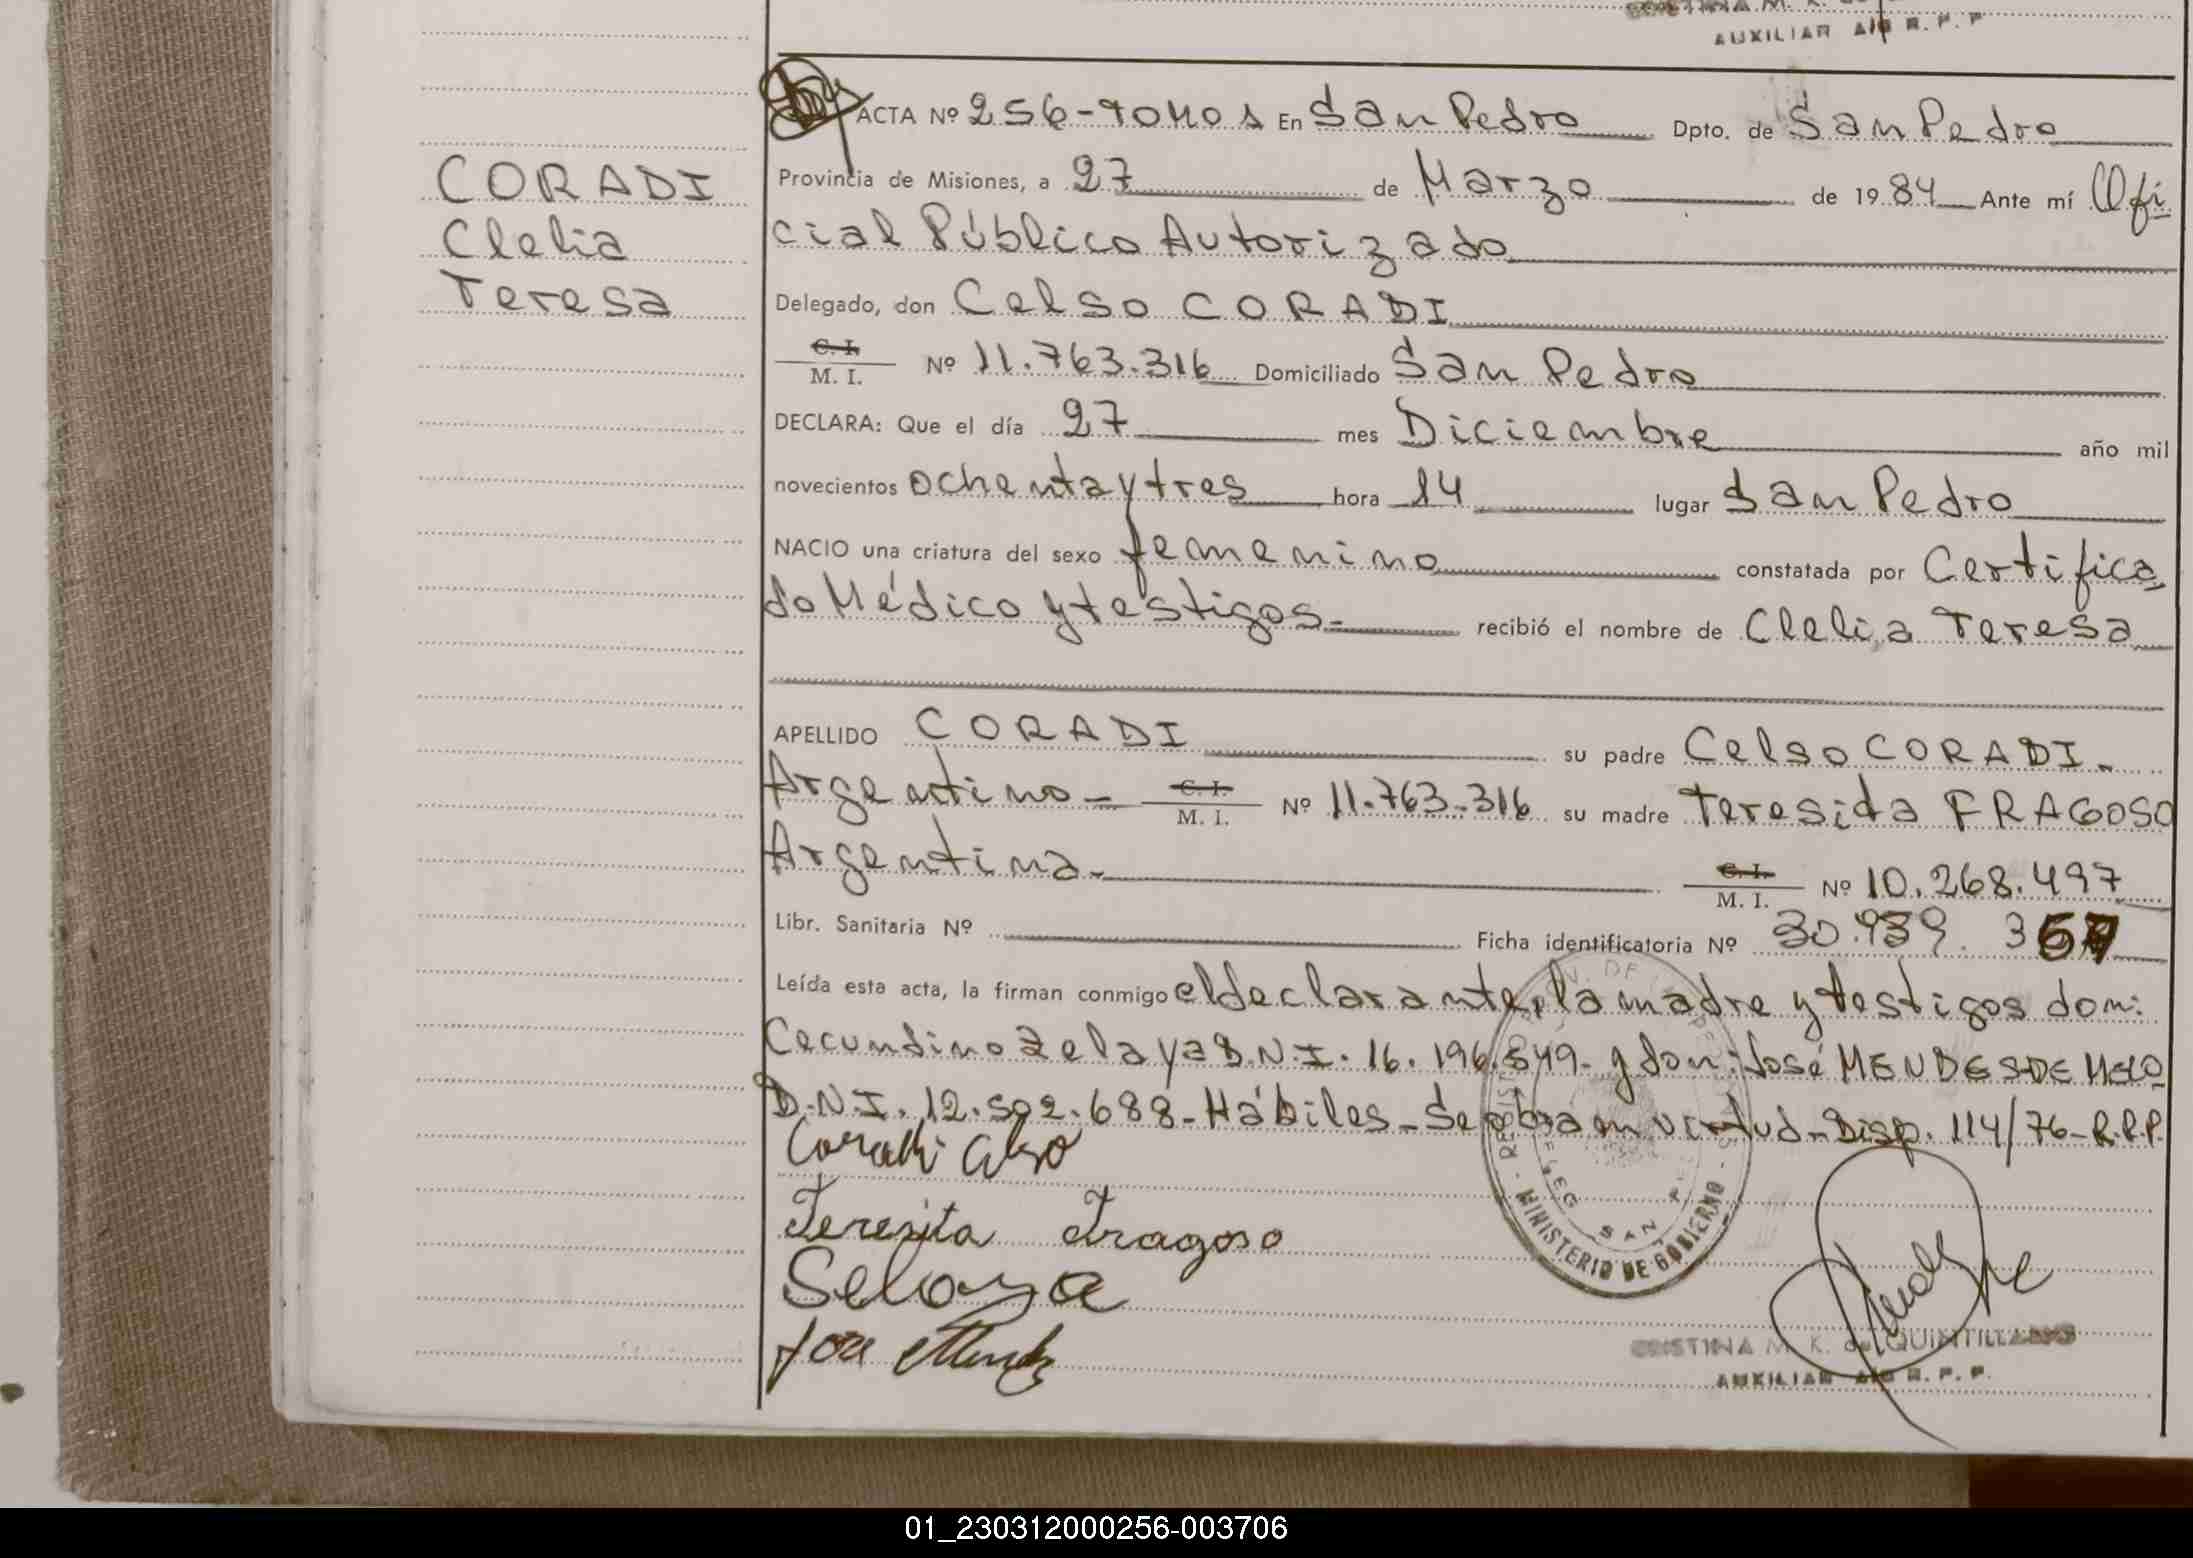 AUXILIAR A/C R. P. P
ACTA Nº 256-TOMO 1 En San Pedro Dpto. de San Pedro
CORADI
Clelia
Teresa
Provincia de Misiones, a 27 de Marzo de 1984 Ante mí Ofi-
cial Público Autorizado
Delegado, don Celso CORADI
C. I.
M. I. Nº 11.763.316 Domiciliado San Pedro
DECLARA: Que el día 27 mes Diciembre año mil
novecientos ochenta y tres hora 14 lugar San Pedro
NACIO una criatura del sexo femenino constatada por Certifica
do Médico y testigos- recibió el nombre de Clelia Teresa
APELLIDO CORADI su padre Celso CORADI-
Argentino- C. I. M. I. Nº 11.763.316 su madre Teresida FRAGOSO
Argentina- C. I. M. I. Nº 10.268.497
Libr. Sanitaria Nº Ficha identificatoria Nº 30.939.3
Leída esta acta, la firman conmigo el declarante, la madre y testigos don:
Cecundino Zelaya D.N.I. 16.196.849- y don: José MENDES DE MELO
D.N.I. 12.502.688- Hábiles- Se obra en virtud- Disp. 114/76- R.P.P.
Coradi Celso
Teresita Fragoso
Selaya
Jose Mendes
MINISTERIO DE GOBIERNO
DELEG SAN P
CRISTINA M. K. de QUINTILLANO
AUXILIAR A/C R. P. P.
01_230312000256-003706